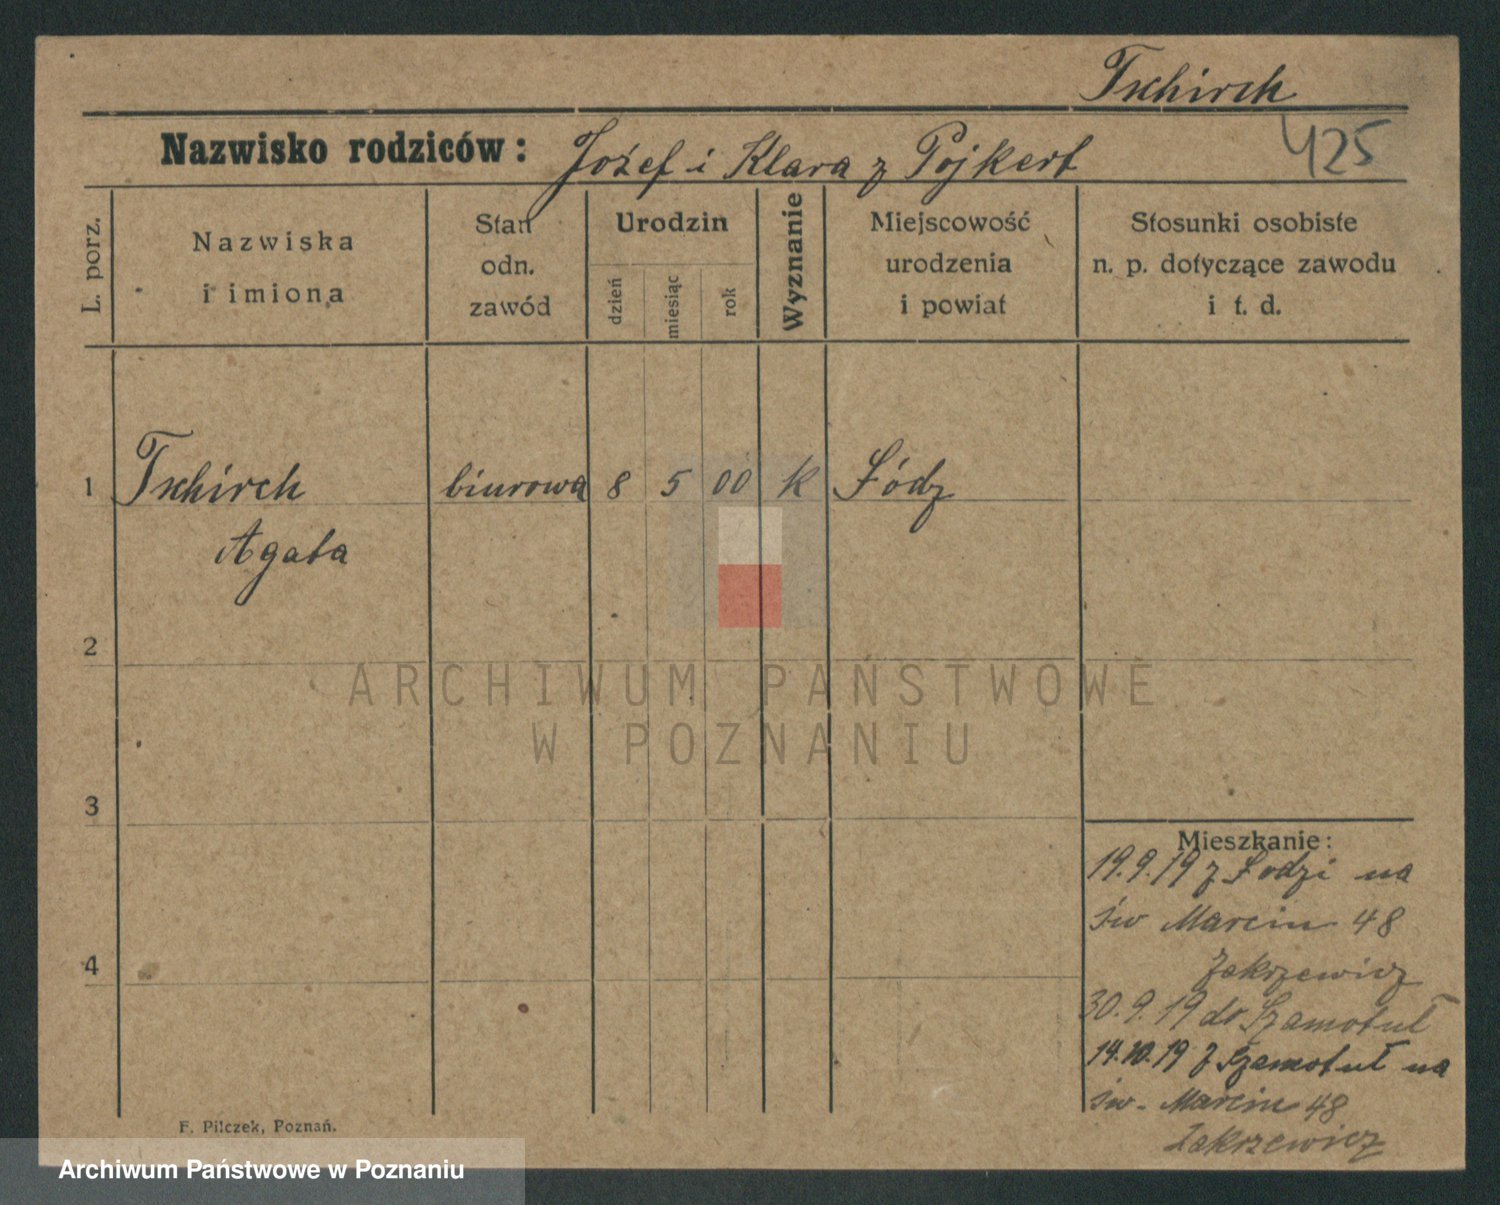 Tschirch
Nazwisko rodziców: Józef i Klara z Pojkert
425
L. porz.
Nazwiska
i imiona
Stan
odn.
zawód
Urodzin
dzień
miesiąc
rok
Wyznanie
Miejscowość
urodzenia
i powiat
Stosunki osobiste
n. p. dotyczące zawodu
i t. d.
1 Tschirch biurowa 8 5 00 k Łódz
Agata
2
3
4
ARCHIWUM PAŃSTWOWE
W POZNANIU
Mieszkanie:
19.9.19 z Łodzi na
św Marcin 48
Zakrzewicz
30.9.19 do Szamotuł
14.10.19 z Szamotuł na
św. Marcin 48
Zakrzewicz
F. Pilczek, Poznań.
Archiwum Państwowe w Poznaniu